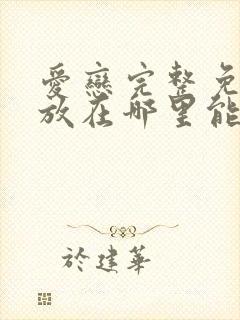 愛戀完整免
放在哪里能
於建華